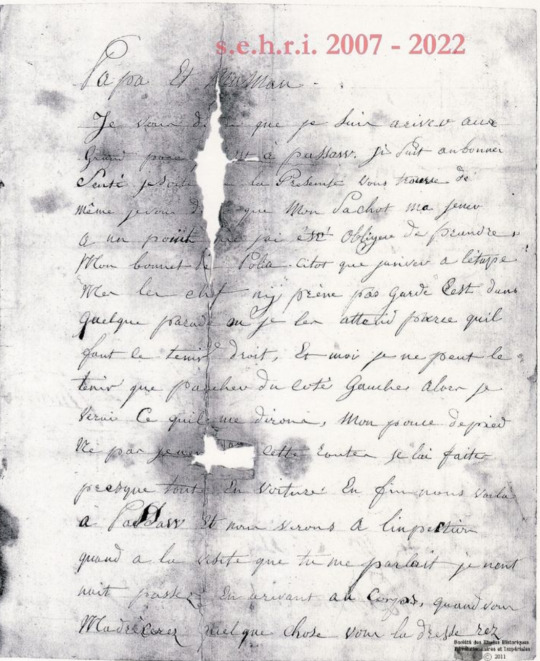 s.e.h.r.i. 2007 - 2022
Papa Et Maman
Je vous d que je suis arivev aux
Grand à passaw. Je suit anbonner
Senté la Présente vous trouve de
même que Mon Sachot ma
a un point jai été Obligue de prandre
Mon bonnet de Police. Citot que jarivev a létape
Mes les chef ny prène pas garde Cest dans
quelque parade ou je les attend parce quil
faut le tenir droit, Et moi je ne peut le
tenir que pancher du coté Gauches Alors je
verai Ce quil me dirons, Mon pouce depied
Ne pas cette route je lai faite
presque toute En voiture En fin nous voila
a Passaw Et nous verons a linpection
quand a la visite que tu me parlait je nent
nuit passé En arivant au Corps, quand vous
Madrécerez quelque chose vous la dresserez
Société des Etudes Historiques
Révolutionnaires et Impériales
© 2011